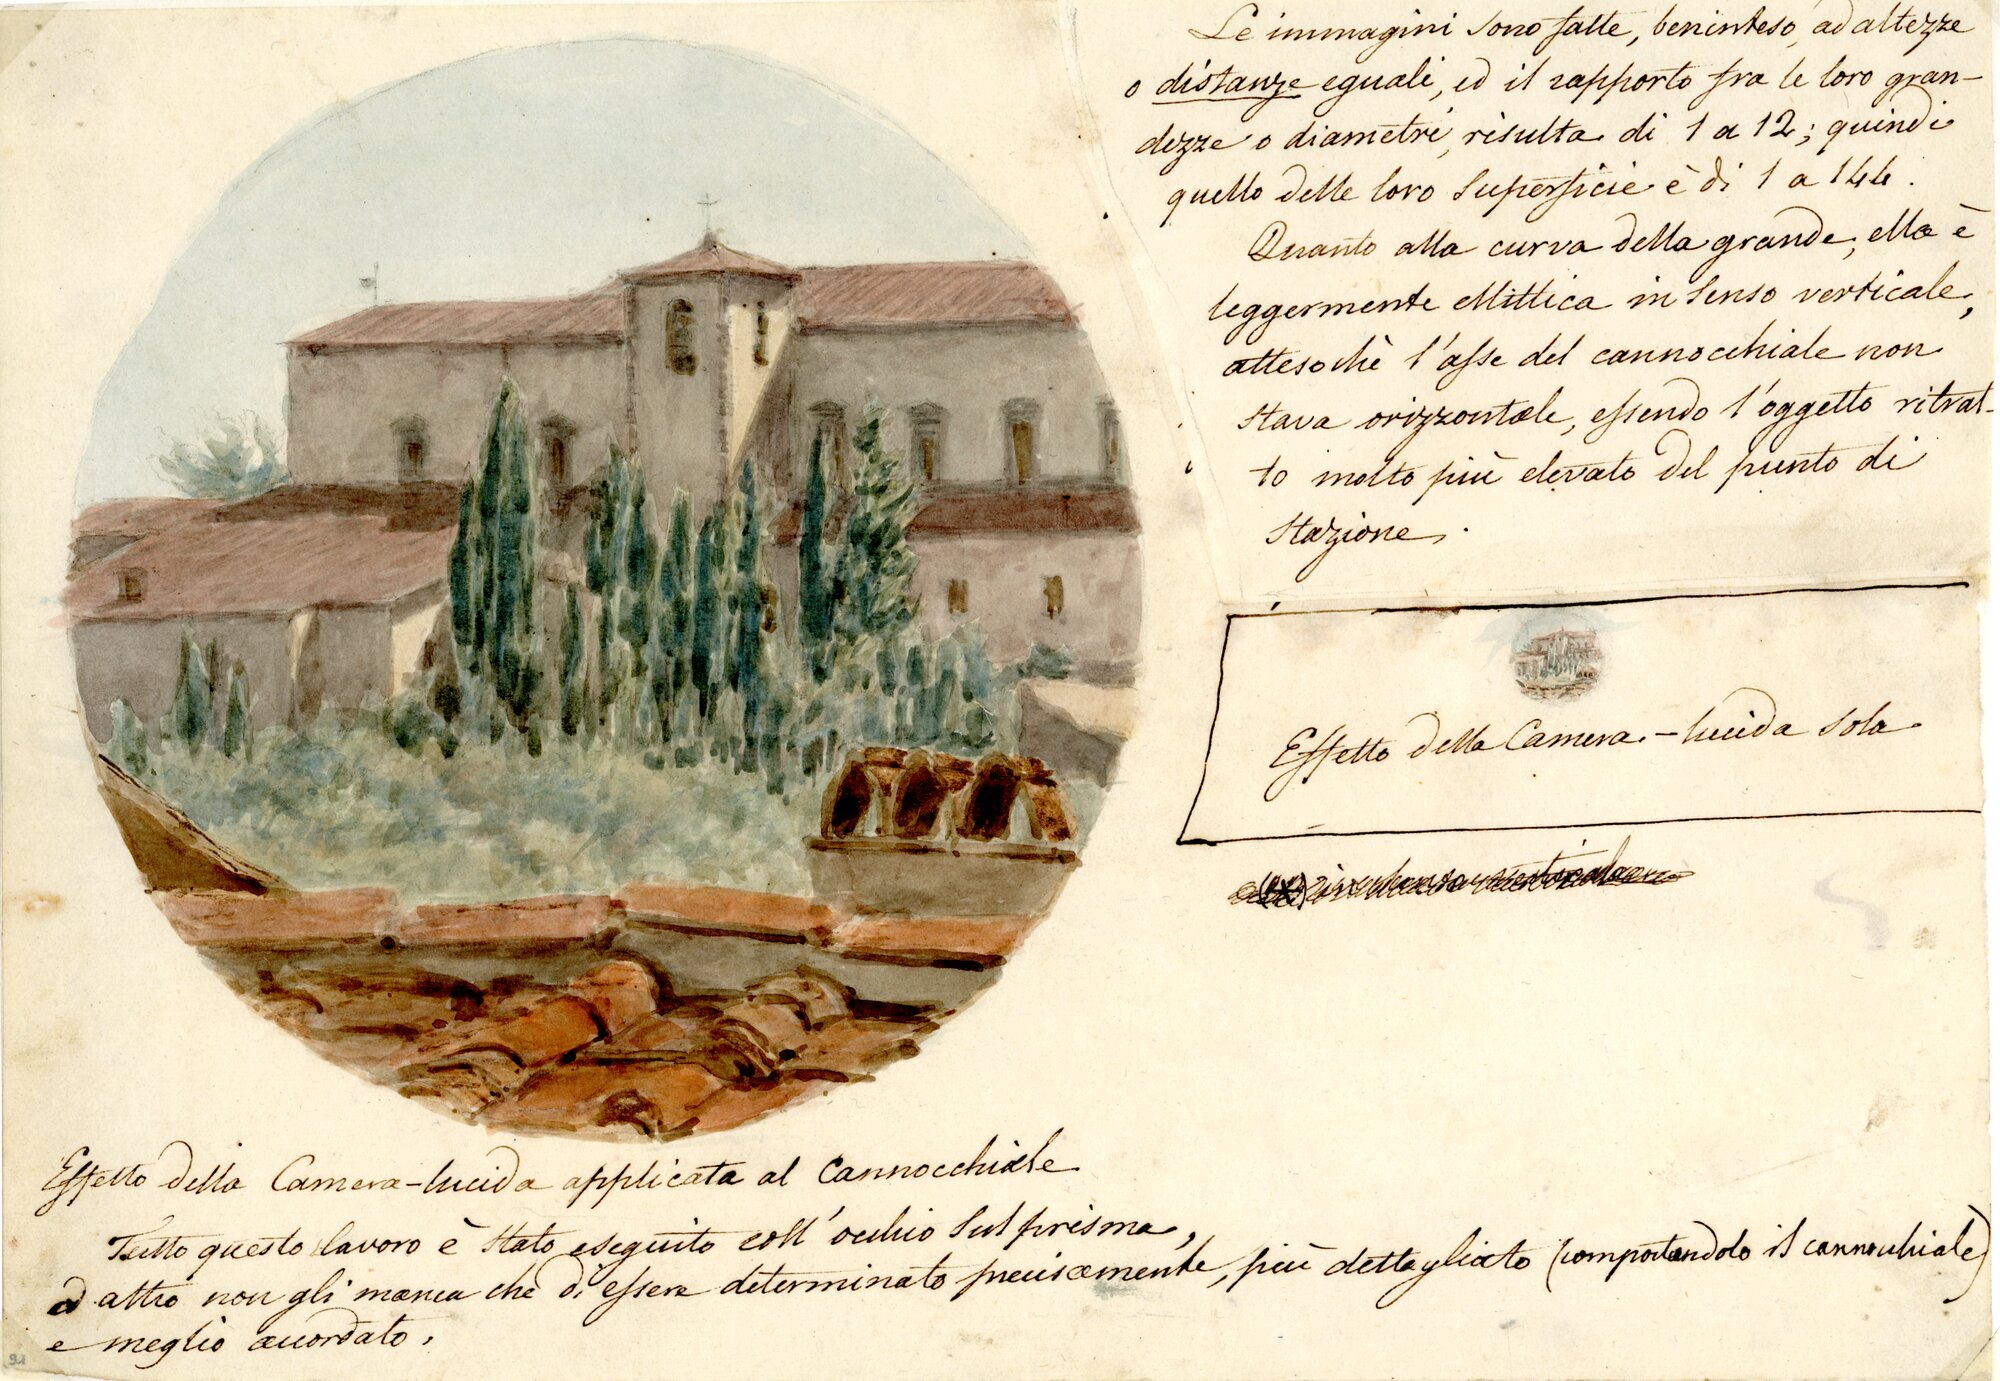 Le immagini sono fatte, beninteso, ad altezze
o distanze eguali, ed il rapporto fra le loro gran-
dezze o diametri, risulta di 1 a 12; quindi
quello delle loro superficie è di 1 a 144.
Quanto alla curva della grande, ella è
leggermente ellittica in senso verticale,
attesochè l'asse del cannocchiale non
stava orizzontale, essendo l'oggetto ritrat-
to molto più elevato del punto di
stazione.
Effetto della Camera-lucida sola
Effetto della Camera-lucida applicata al Cannocchiale
Tutto questo lavoro è stato eseguito coll'occhio sul prisma,
ed altro non gli manca che di essere determinato precisamente, più dettagliato (comportandolo il cannocchiale)
e meglio accordato.